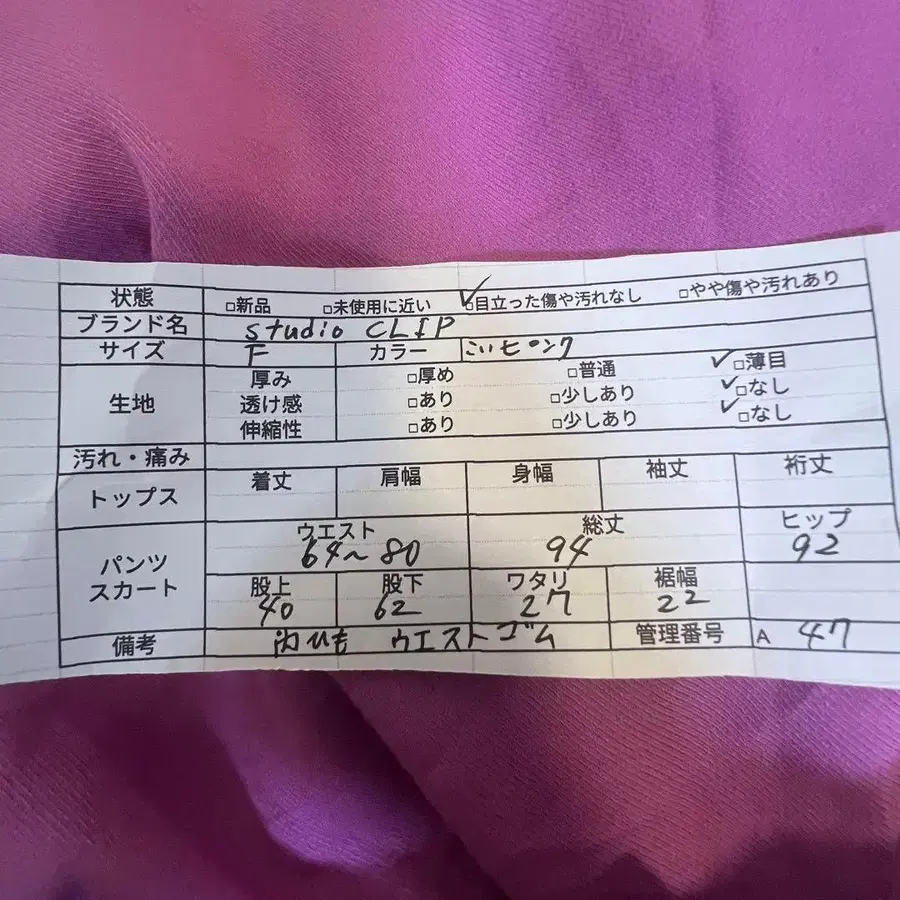 状態 □新品 □未使用に近い ✓□目立った傷や汚れなし □やや傷や汚れあり
ブランド名 studio CLIP
サイズ F カラー こいピンク
生地 厚み □厚め □普通 ✓□薄目
透け感 □あり □少しあり ✓□なし
伸縮性 □あり □少しあり ✓□なし
汚れ・痛み
トップス 着丈 肩幅 身幅 袖丈 裄丈
パンツ スカート ウエスト 総丈 ヒップ
64～80 94 92
股上 股下 ワタリ 裾幅
40 62 27 22
備考 内ひも ウエストゴム 管理番号 A 47